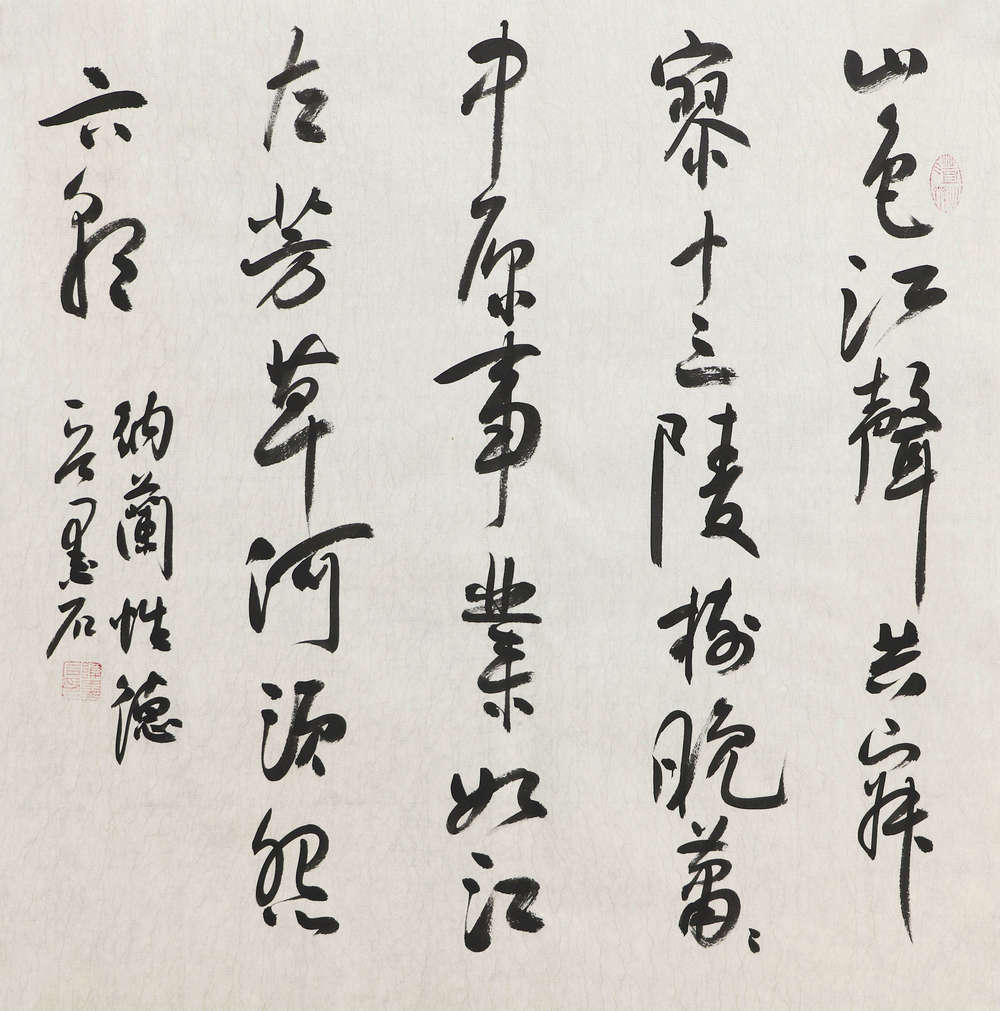 山色江聲共寂
寥十三陵樹晚蕭〻
中原事業如江
左芳草河須怨
六朝
納蘭性德
墨石